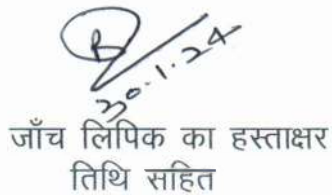 B
30.1.24
जाँच लिपिक का हस्ताक्षर
तिथि सहित